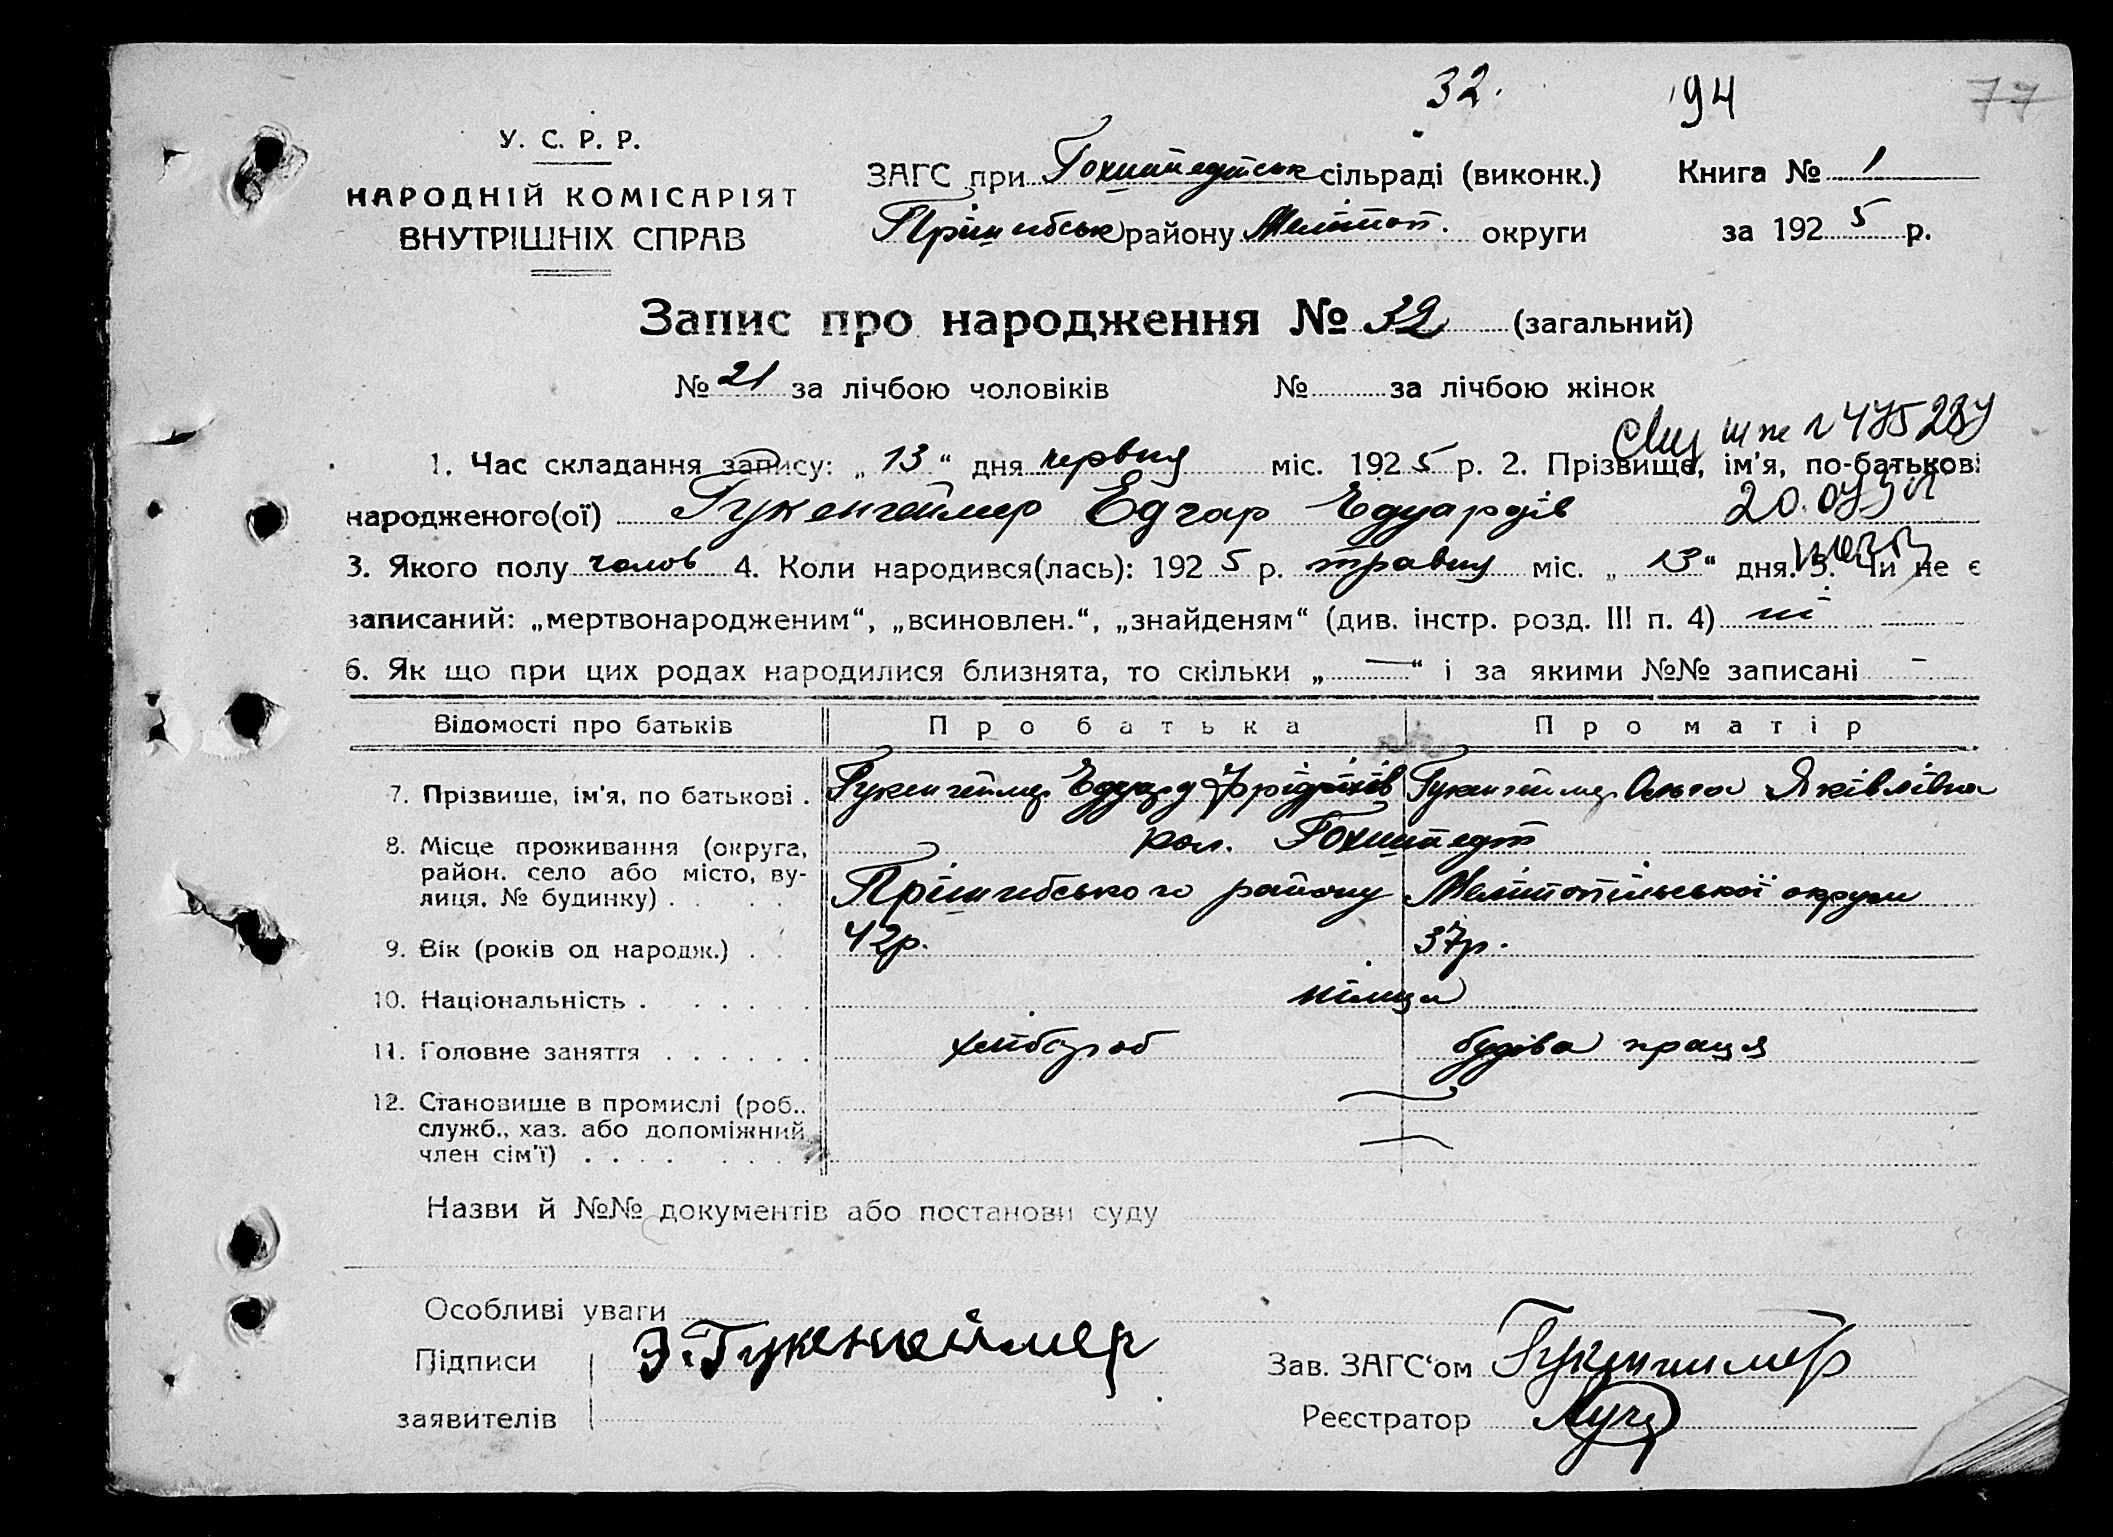 32. 94 77
У. С. Р. Р.
НАРОДНІЙ КОМІСАРІЯТ
ВНУТРІШНІХ СПРАВ
ЗАГС при Гохштедтськ сільраді (виконк.) Книга № 1
Пришибськ району Меліітоп. округи за 1925 р.
Запис про народження № 32 (загальний)
№ 21 за лічбою чоловіків № за лічбою жінок
1. Час складання запису: „13“ дня червня міс. 1925 р. 2. Прізвище, ім'я, по-батькові
народженого(ої) Гукенгеймер Едгар Едуардів
3. Якого полу чолов 4. Коли народився(лась): 1925 р. травня міс. „13“ дня. 5. Чи не є
записаний: „мертвонародженим“, „всиновлен.“, „знайденям“ (див. інстр. розд. III п. 4) ні
6. Як що при цих родах народилися близнята, то скільки „—“ і за якими №№ записані —
Відомості про батьків Про батька Про матір
7. Прізвище, ім'я, по батькові . Гукенгеймер Едуард Фрідріхів Гукенгеймер Ольга Яківлівна
8. Місце проживання (округа, кол. Гохштедт
район. село або місто, ву-
лиця, № будинку) . . . Пришибського району Мелітопільської округи
9. Вік (років од народж.) . . 42р. 37р.
10. Національність . . . . . німци
11. Головне заняття . . . . . хлібороб будіва праця
12. Становище в промислі (роб..
служб., хаз. або допоміжний
член сім'ї) . . . . . . .
Назви й №№ документів або постанови суду
Особливі уваги
Підписи Э. Гукенгеймер Зав. ЗАГС‘ом Гукенгеймер
заявителів Реєстратор